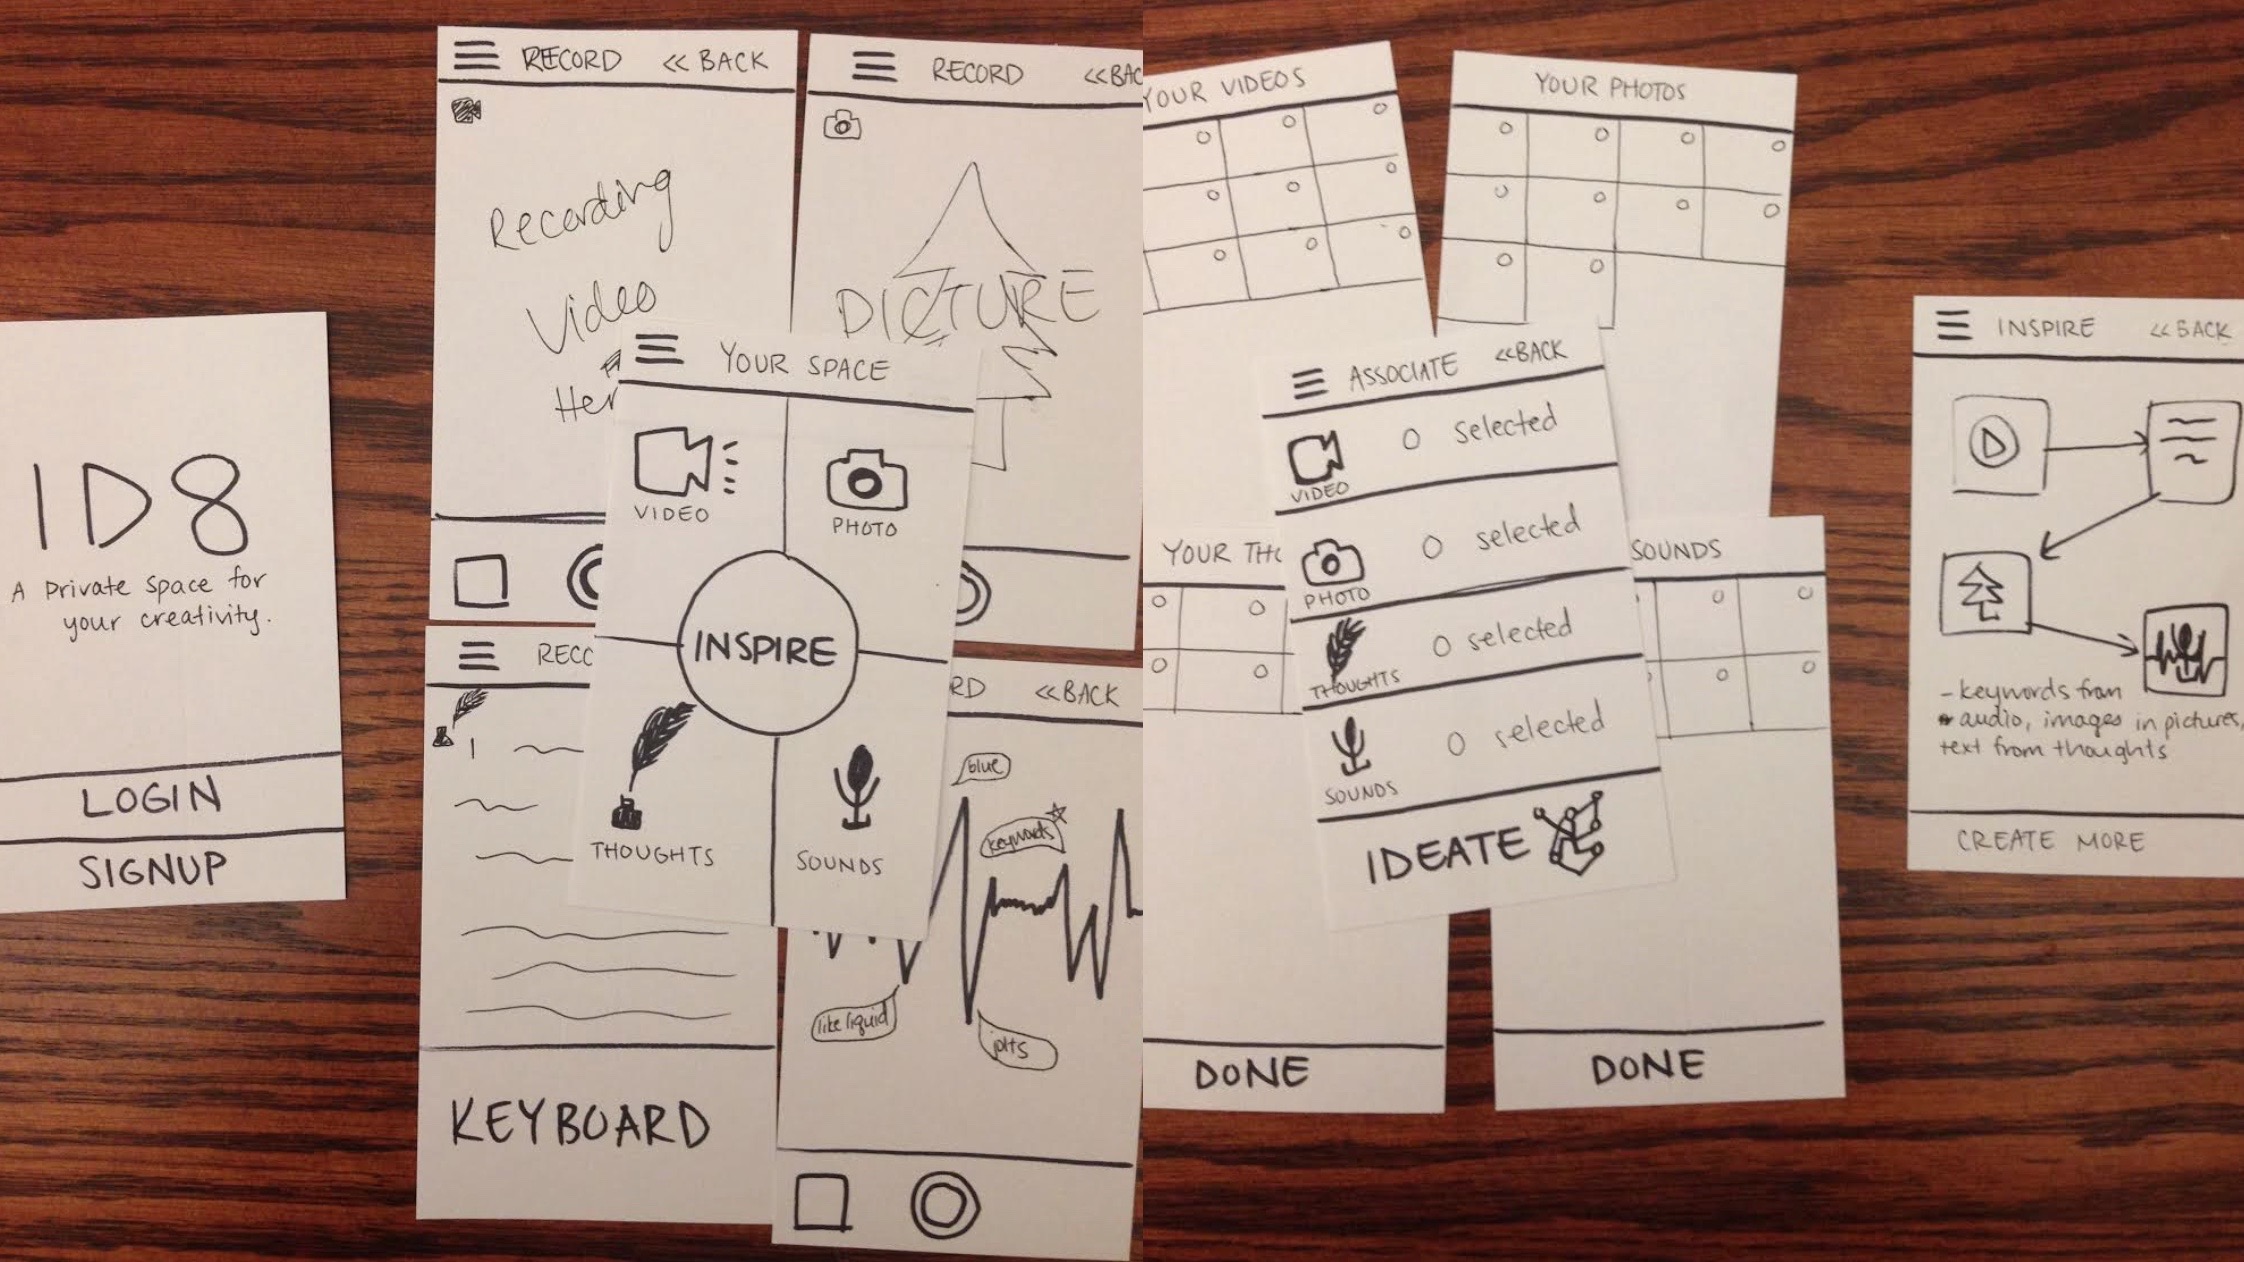 ID8
A private space for
your creativity.
LOGIN
SIGNUP
RECORD << BACK
Recording
Video
Her
RECORD <<BAC
PICTURE
YOUR SPACE
VIDEO
PHOTO
INSPIRE
THOUGHTS
SOUNDS
RECO
KEYBOARD
RD <<BACK
blue
keywords
like liquid
jolts
YOUR VIDEOS
YOUR PHOTOS
ASSOCIATE <<BACK
VIDEO 0 selected
PHOTO 0 selected
THOUGHTS 0 selected
SOUNDS 0 selected
IDEATE
YOUR THO
DONE
SOUNDS
DONE
INSPIRE <<BACK
- keywords from
audio, images in pictures,
text from thoughts
CREATE MORE